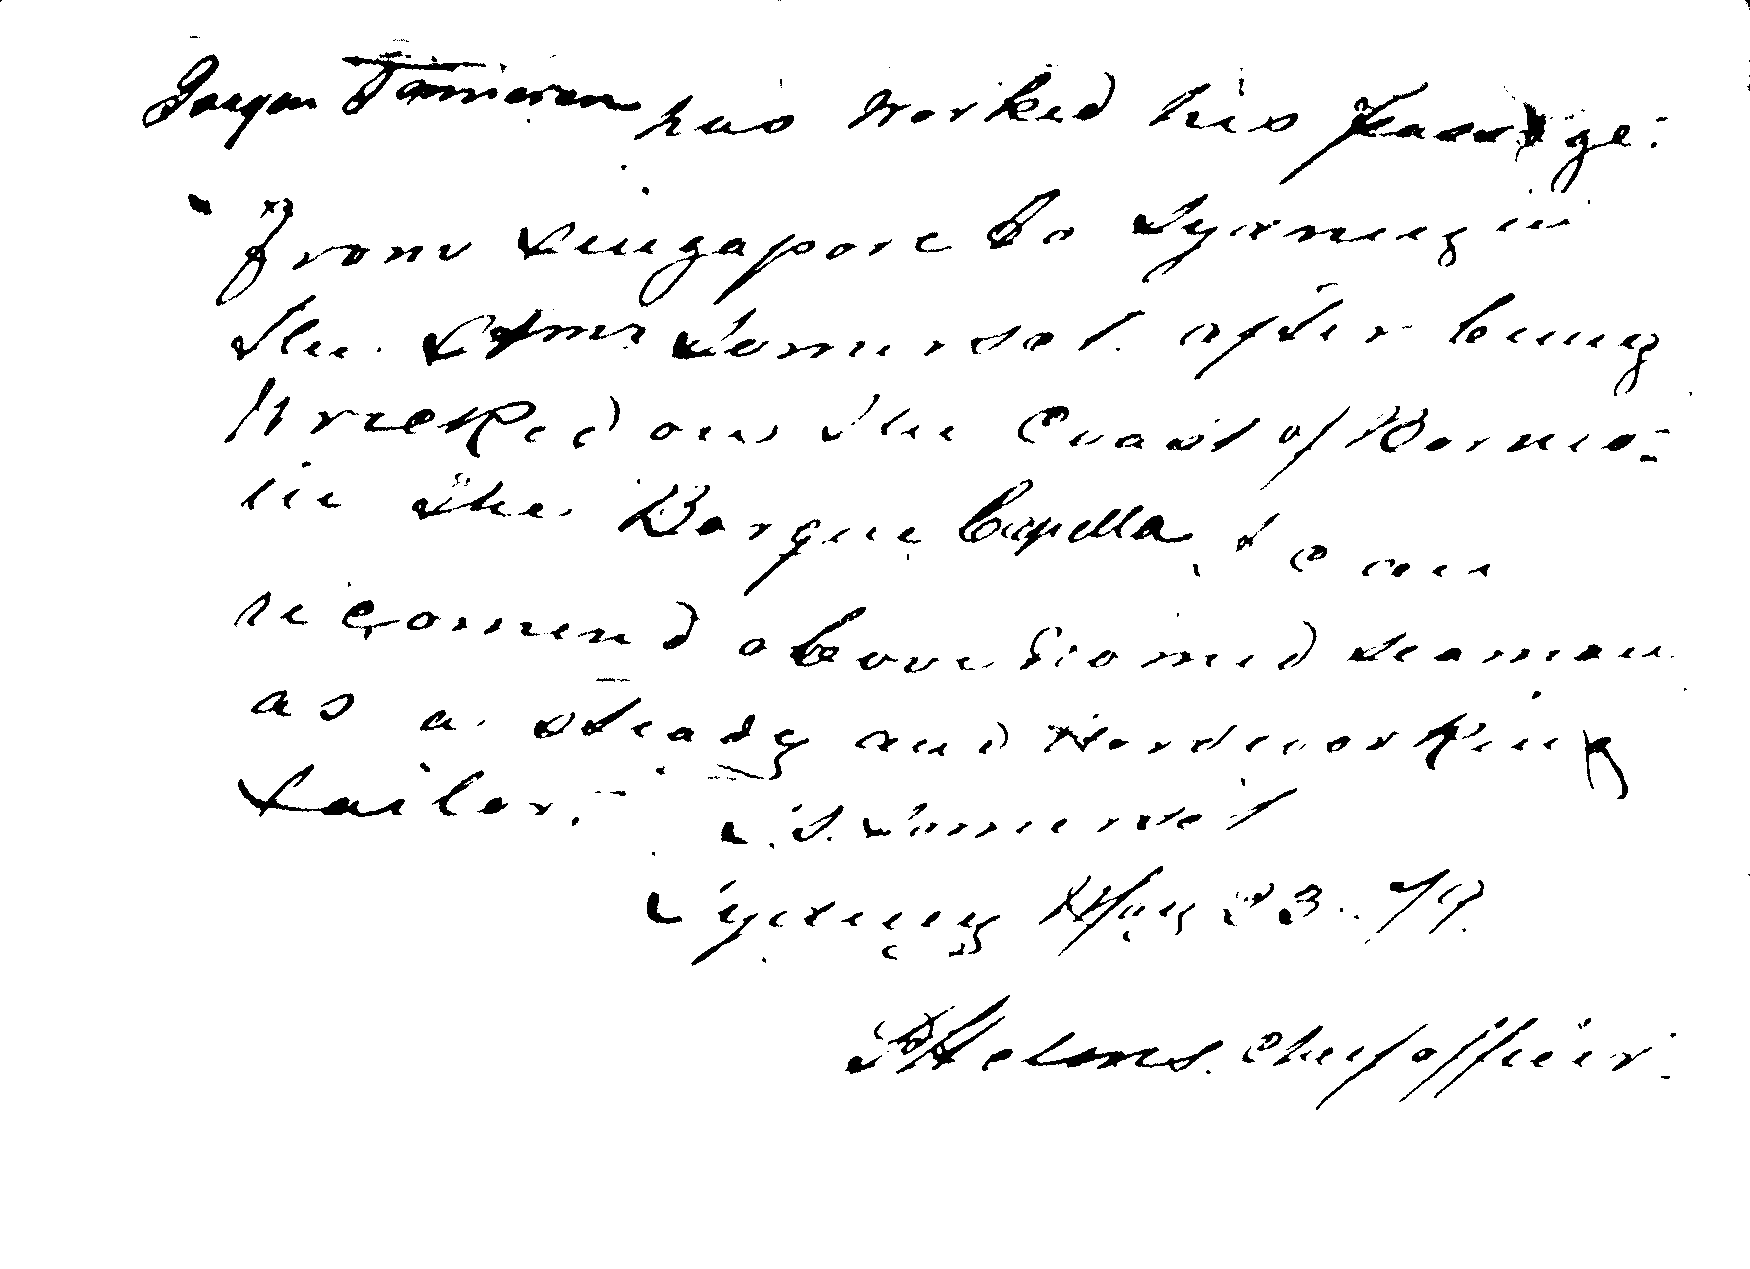 has worked his Passage:
from Singapore to Sydney in
the Stmr Somerset after being
Wrecked on the Coast of Borneo-
in the Barque Capella, I can
recomend above Named seaman
as a steady and Hardworking
Sailor.-
S.S. Somerset
Sydney May 23. 79.
Helms. Chief officer.